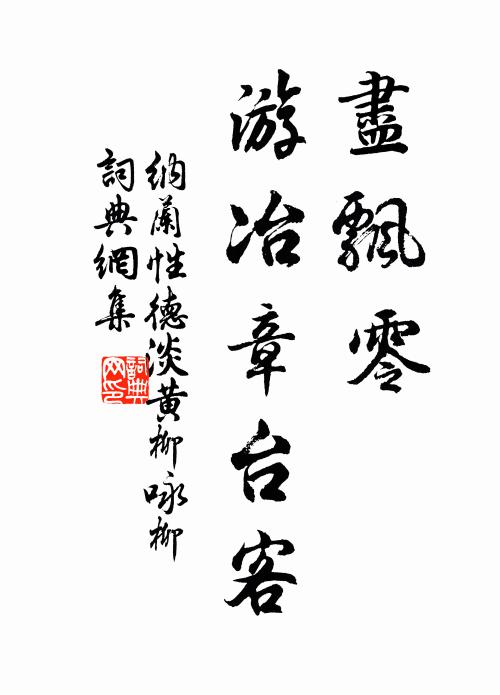 盡飄零
游冶章台客
納蘭性德淡黃柳咏柳
詞典網集
詞典网印